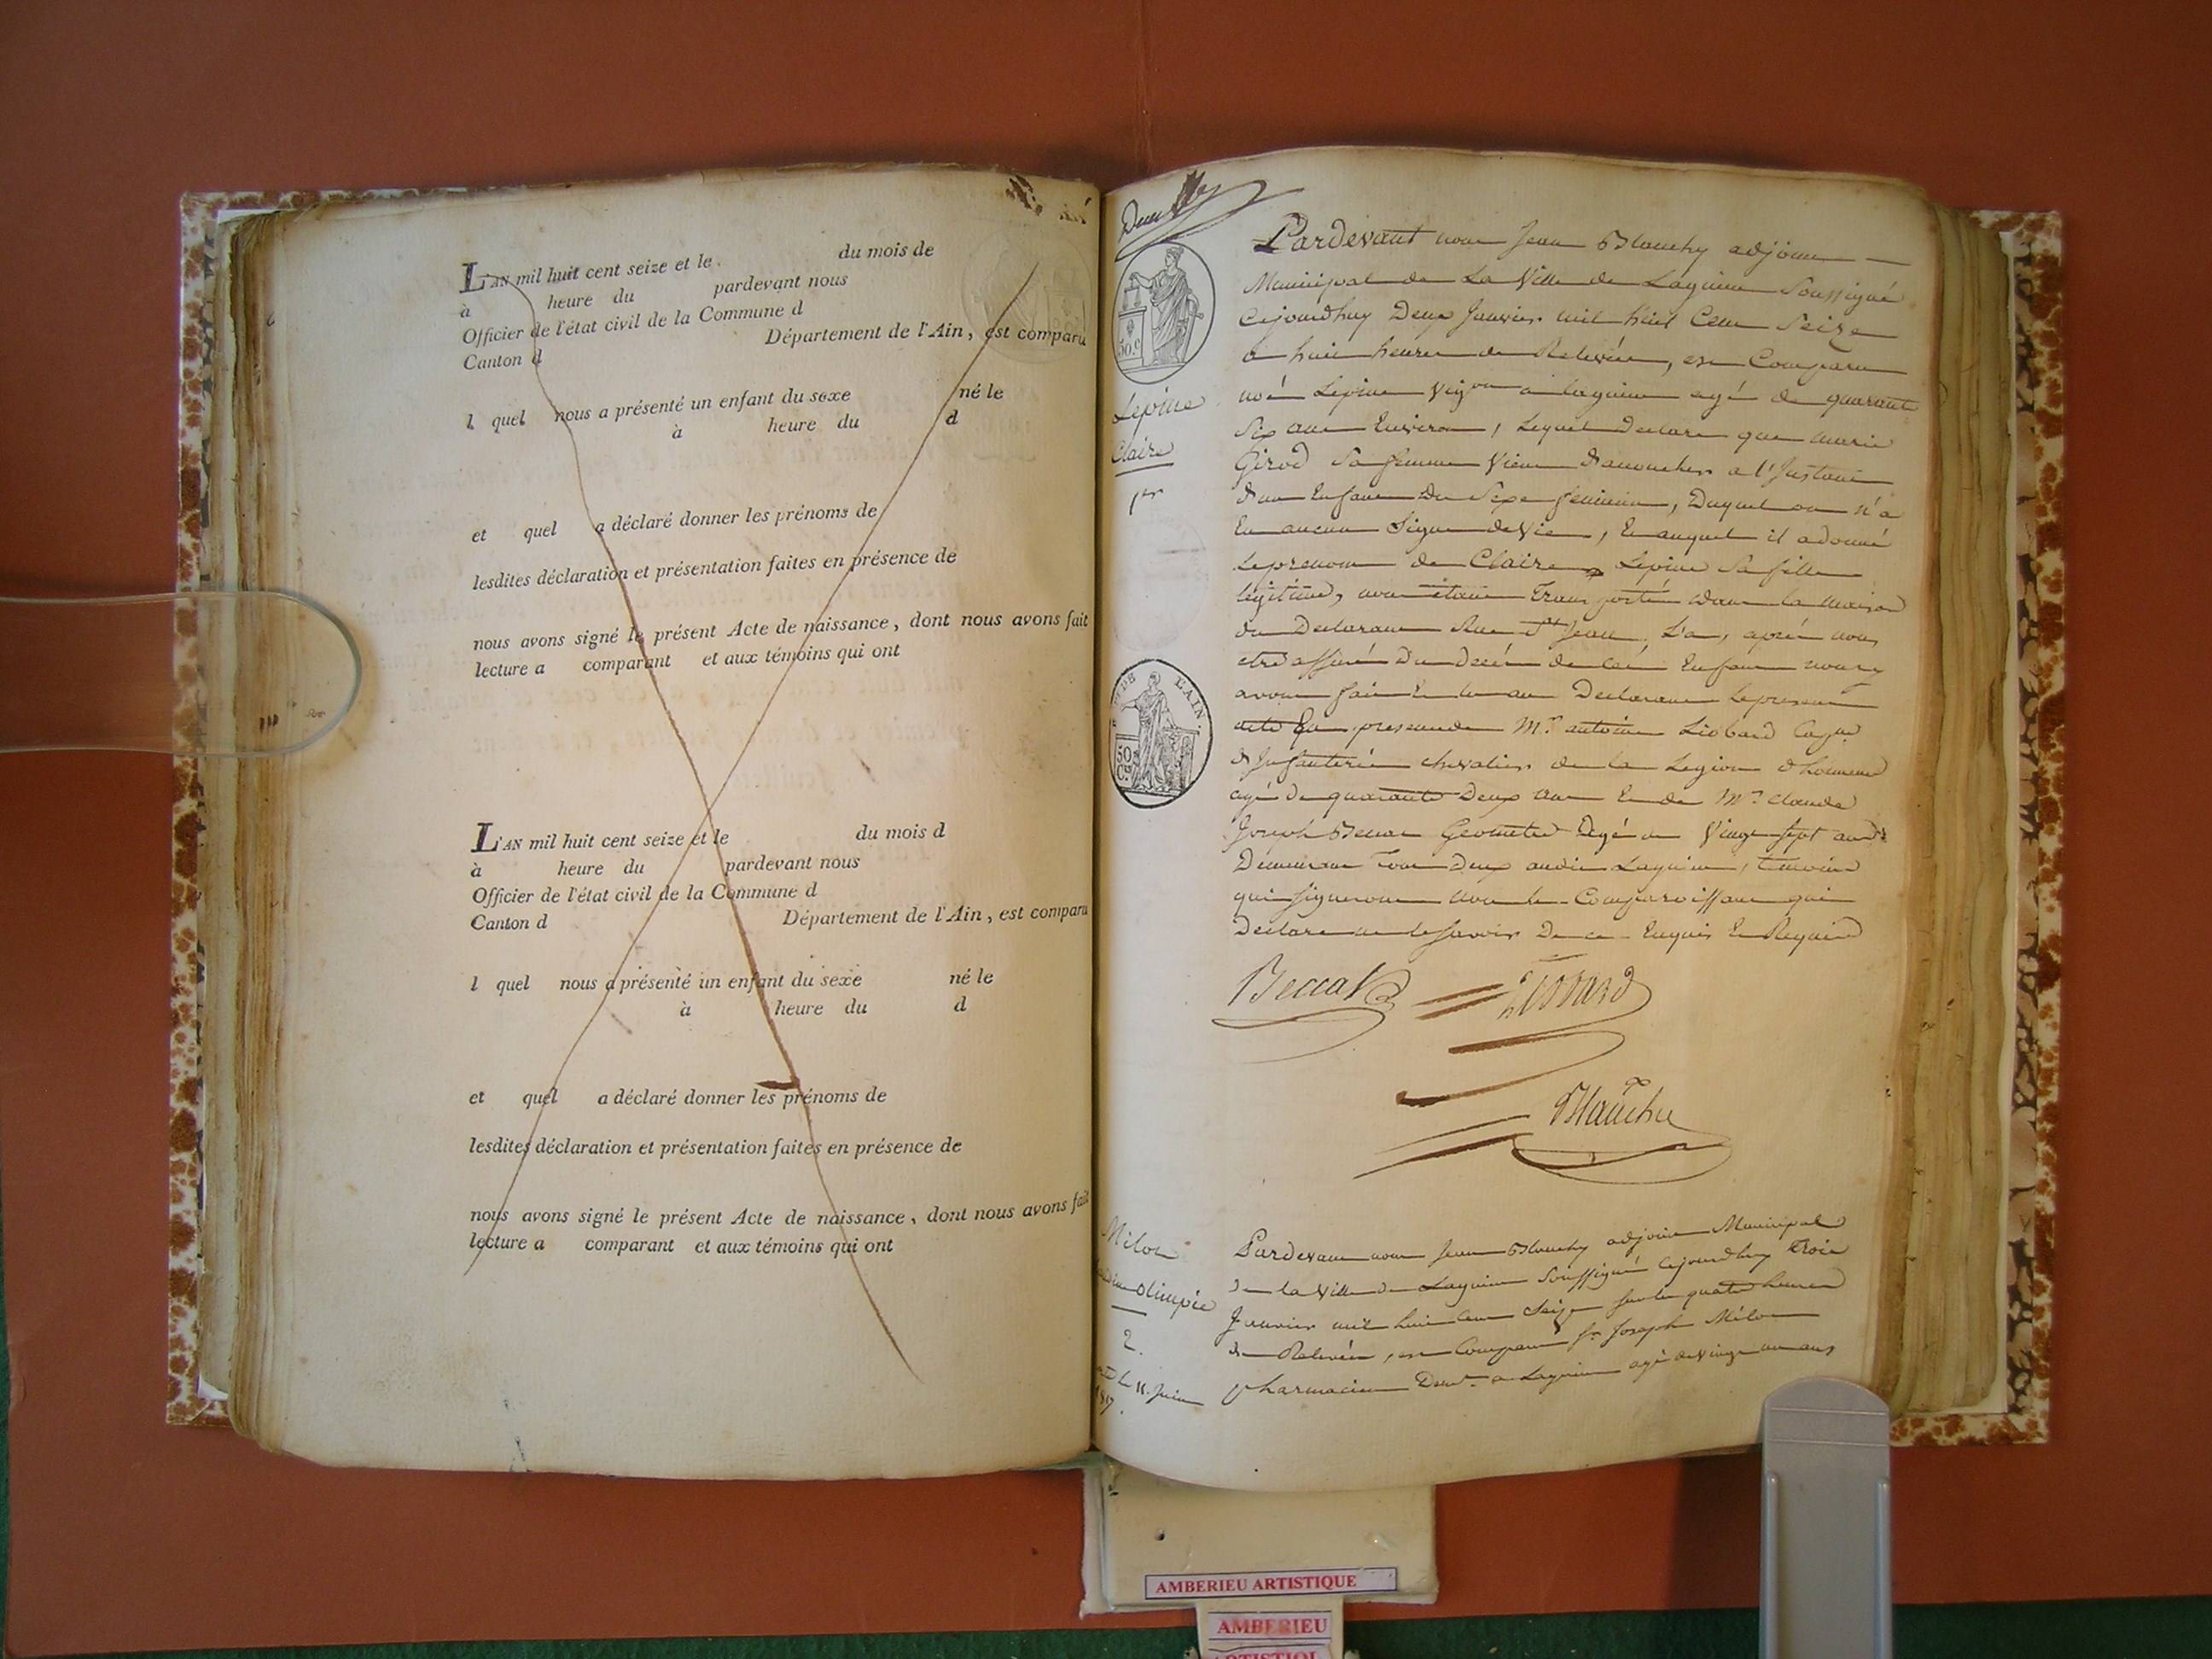 L'AN mil huit cent seize et le du mois de
à heure du pardevant nous
Officier de l'état civil de la Commune d
Canton d Département de l'Ain, est comparu
l quel nous a présenté un enfant du sexe né le
à heure du d
et quel a déclaré donner les prénoms de
lesdites déclaration et présentation faites en présence de
nous avons signé le présent Acte de naissance, dont nous avons fait
lecture a comparant et aux témoins qui ont
L'AN mil huit cent seize et le du mois d
à heure du pardevant nous
Officier de l'état civil de la Commune d
Canton d Département de l'Ain, est comparu
l quel nous a présenté un enfant du sexe né le
à heure du d
et quel a déclaré donner les prénoms de
lesdites déclaration et présentation faites en présence de
nous avons signé le présent Acte de naissance, dont nous avons fait
lecture a comparant et aux témoins qui ont
50.c
Lepine
Claire
1er
AIN.
50
Cs
Pardevant nous Jean Blanchy adjoint
Municipal de La Ville de Lagnieu Soussigné
Cejourdhuy Deux Janvier mil huit Cent Seize
a huit heures de Relevée, est Comparu
noé Lepine Vigon a lagnieu agé de quarante
Six ans Environ, Lequel Declare que marie
Girod Sa femme Vient d'accoucher a l'Instant
d'un Enfant Du Sexe feminin, Duquel on n'a
Eu aucun Signe de Vie, Et auquel il a donné
Le prenom de Claire Lepine Sa fille
legitime, nous étant Transporté dans la maison
du Declarant Rue St Jean, La, aprés nous
etre assuré Du Decés de cet Enfant nous y
avons fait Et lu au Declarant Le present
acte En presence de Mr. antoine Liobard Capne
d'Infanterie chevalier de la Legion d'honneur
agé de quarante Deux ans Et de Mr. Claude
Joseph Beccat Geometre agé de Vingt Sept ans
Demeurant Tous Deux audit Lagnieu, temoins
qui Signeront non le Comparoissant qui
Declare ne le Savoir De ce Enquis Et Requis
Beccat Liobard
Blanchy
Milon
olimpie
2.
le 11. Juin
1817.
Pardevant nous Jean Blanchy adjoint Municipal
De la Ville De Lagnieu Soussigné Cejourdhuy Trois
Janvier mil huit Cent Seize sur les quatre heures
de Relevée, est Comparu Sr Joseph Milon
Pharmacien Demt. a Lagnieu agé de vingt un ans
AMBERIEU ARTISTIQUE
AMBERIEU